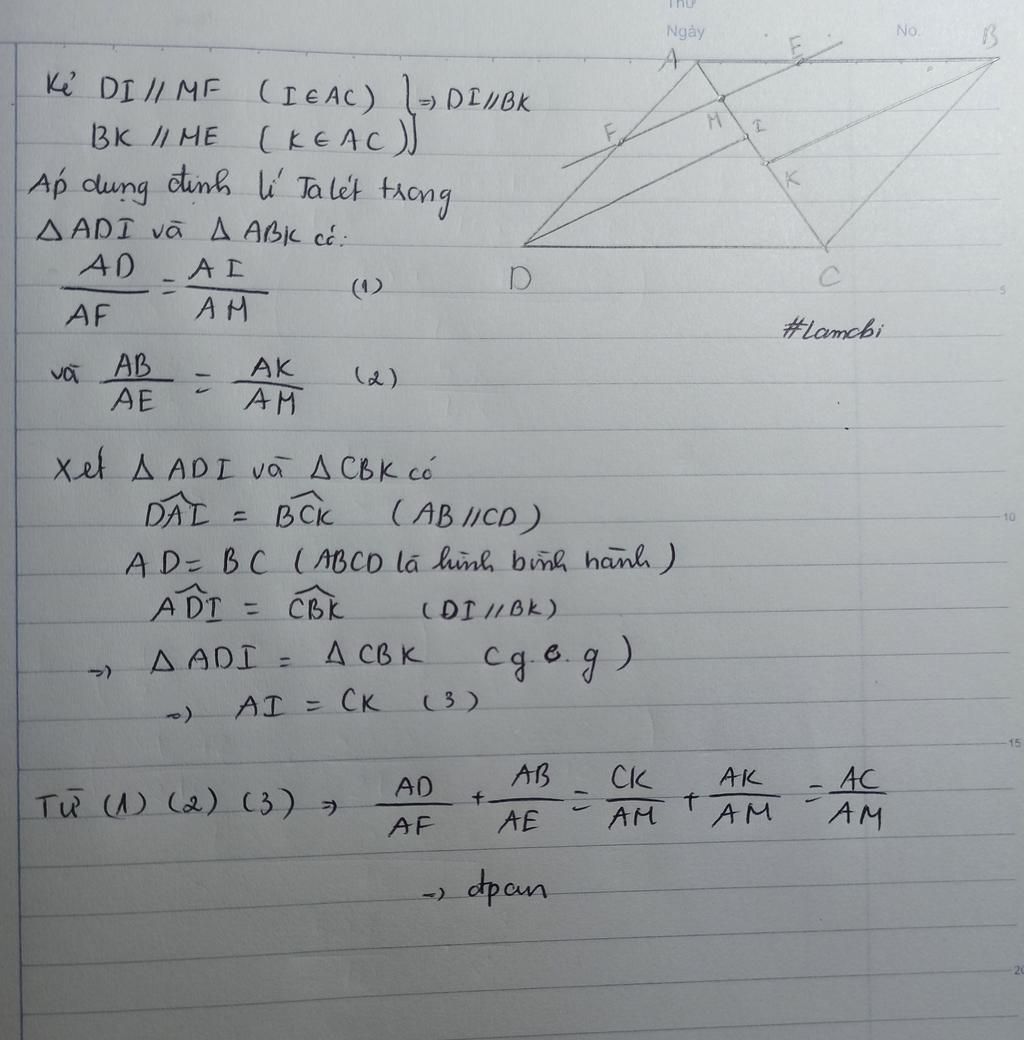 Thứ
Ngày No.
Kẻ DI // MF (I ∈ AC) } => DI // BK
BK // ME (K ∈ AC)
Áp dụng định lí Talét trong
Δ ADI và Δ ABK có:
AD/AF = AI/AM (1)
và AB/AE = AK/AM (2)
Xét Δ ADI và Δ CBK có
DAI = BCK (AB // CD)
AD = BC (ABCD là hình bình hành)
ADI = CBK (DI // BK)
=> Δ ADI = Δ CBK (g.c.g)
=> AI = CK (3)
Từ (1) (2) (3) => AD/AF + AB/AE = CK/AM + AK/AM = AC/AM
=> đpcm
A E B
F M I
K
D C
#Lamchi
5
10
15
20